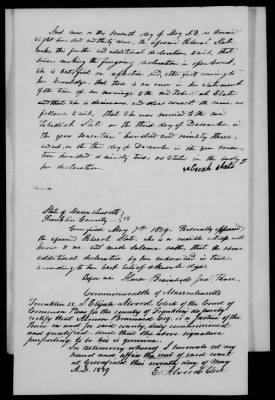 And now, on the seventh day of May A.D. as thousand
eight hundred and thirty nine, the aforesaid Rebecah Slate
makes this further and additional declaration, to wit, that
since making the foregoing declaration in open Court,
she is satisfied on reflection and, other facts coming to
her knowledge, that there is an error in her statement
of the time of her marriage to the said Zebediah Slate
and that she is desirous, and does correct the same, as
follows, to wit, that she was married to the said
Zebediah Slate on the third day of December in
the year seventeen hundred and ninety three,
instead, on the third day of December in the year seven-
teen hundred & ninety two, as stated in the body of
her declaration.
Rebecah Slate
State of Massachusetts }
Franklin County } SS
Greenfield May 7th 1839. Personally appeared
the aforesaid Rebecah Slate, who is a credible witness well
known to me and made solemn oath, that the above
additional declaration by her subscribed is true,
according to her best belief & knowledge.
Before me Almon Brainard Jus. Peace.
Commonwealth of Massachusetts
Franklin ss. I Elijah Alvord, Clerk of the Court of
Common Pleas for the county of Franklin do hereby
certify that Almon Brainard Esq. is a justice of the
Peace in and for said county, duly commissioned
and qualified and that the above signature
purporting to be his is genuine.
In testimony whereof I hereunto set my
hand and affix the seal of said court
at Greenfield this seventh day of May
A.D. 1839
E. Alvord Clerk